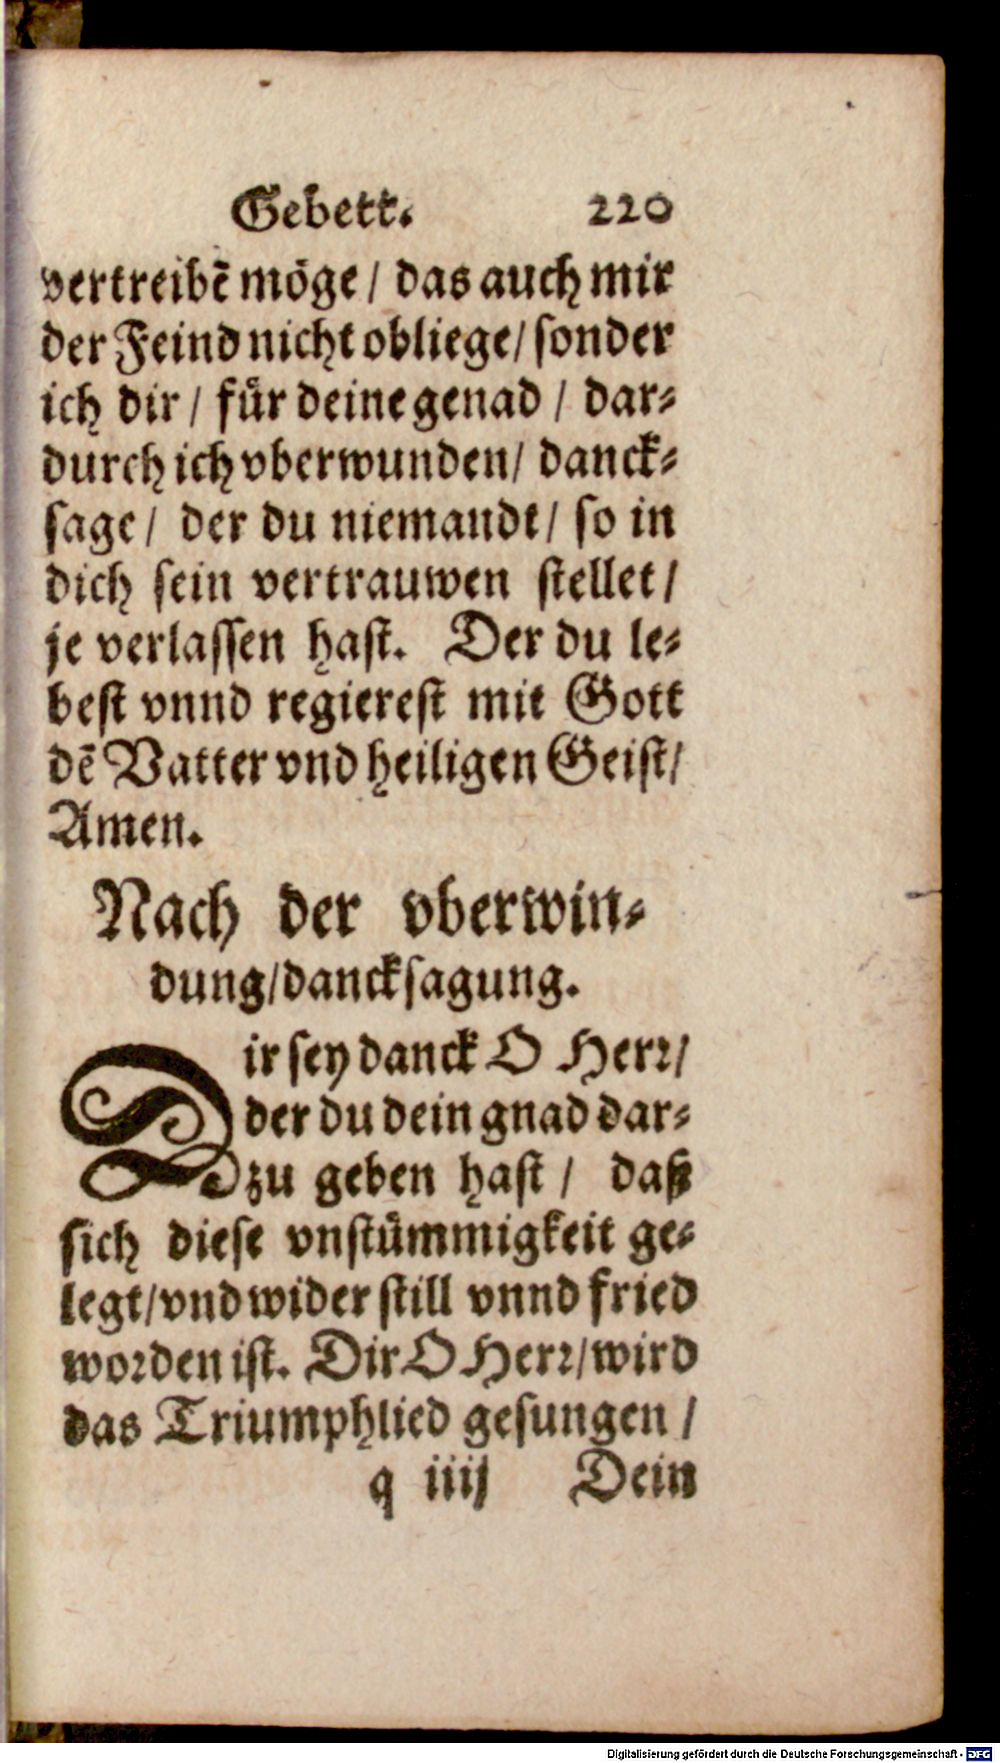 Gebett. 220
vertreibē möge / das auch mir
der Feind nicht obliege / sonder
ich dir / für deine genad / dar⸗
durch ich vberwunden / danck⸗
sage / der du niemandt / so in
dich sein vertrauwen stellet /
je verlassen hast. Der du le⸗
best vnnd regierest mit Gott
dē Vatter vnd heiligen Geist /
Amen.
Nach der vberwin⸗
dung / dancksagung.
Dir sey danck O Herr /
der du dein gnad dar⸗
zu geben hast / daß
sich diese vnstümmigkeit ge⸗
legt / vnd wider still vnnd fried
worden ist. Dir O Herr / wird
das Triumphlied gesungen /
q iiij Dein
Digitalisierung gefördert durch die Deutsche Forschungsgemeinschaft - DFG